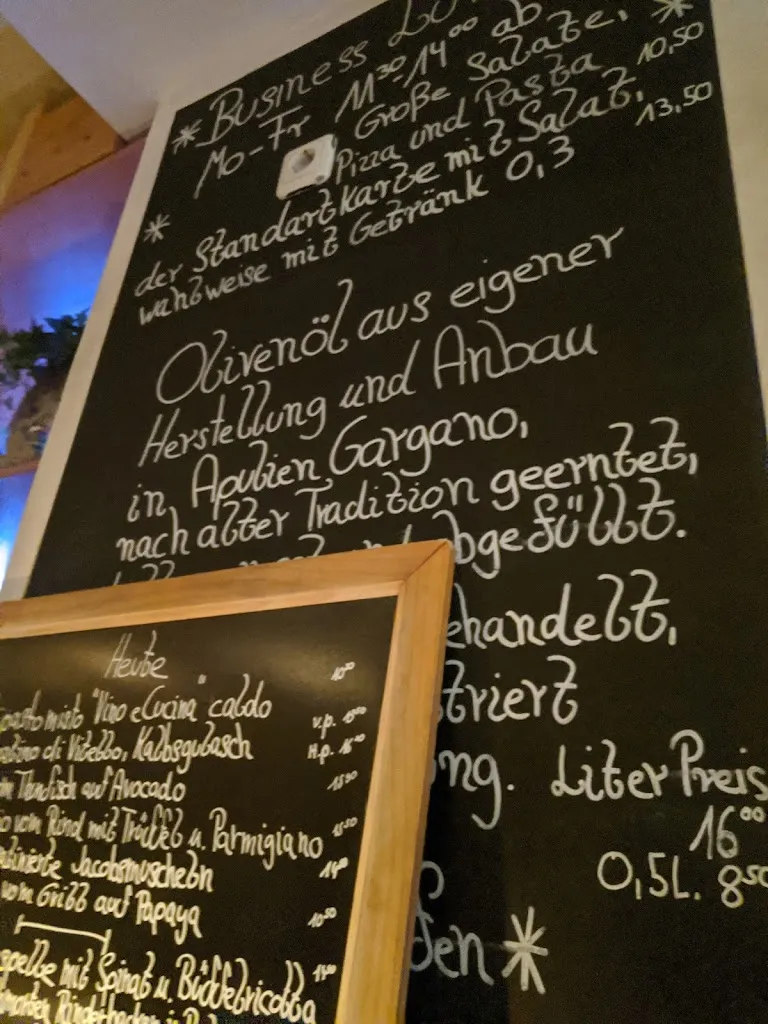 *Business
Mo-Fr 11³⁰-14⁰⁰ ab
Große Salate, 10,50
Pizza und Pasta
* der Standartkarte mit Salat, 13,50
wahlweise mit Getränk 0,3
Olivenöl aus eigener
Herstellung und Anbau
in Apulien Gargano,
nach alter Tradition geerntet,
abgefüllt.
ehandelt,
triert
ng. Liter Preis
16⁰⁰
0,5L. 8⁵⁰
fen *
Heute
misto "Vino e Cucina" caldo
di Vitello, Kalbsgulasch
Thunfisch auf Avocado
vom Rind mit Trüffel u. Parmigiano
Jacobsmuscheln
vom Grill auf Papaya 10⁵⁰
mit Spinat u. Büffelricotta